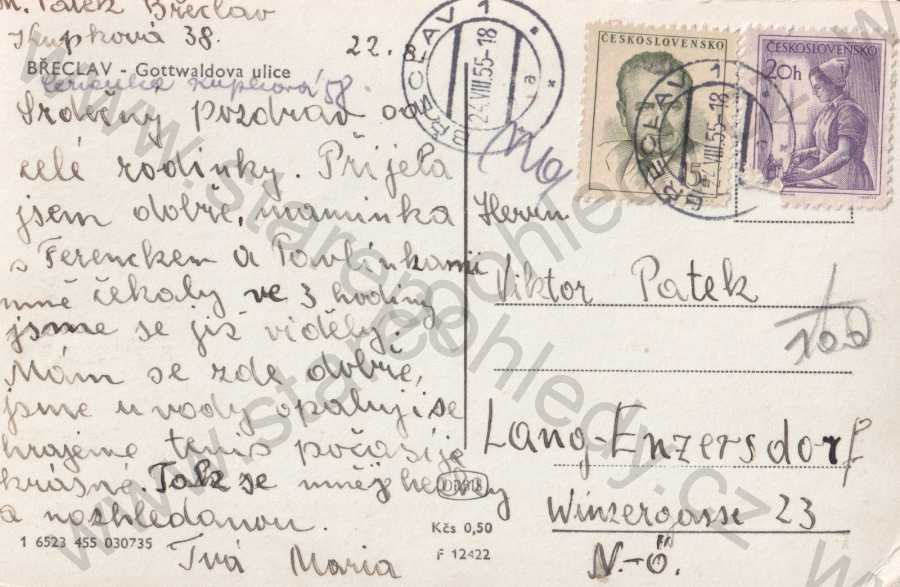 M. Patek Břeclav
Kupková 38.
22.
BŘECLAV - Gottwaldova ulice
Kupková 58
Srdečný pozdrav od
celé rodinky. Přijela
jsem dobře, maminka
s Ferenckem a Pavlínkami
mně čekaly ve 3 hodiny
jsme se již viděly.
Mám se zde dobře,
jsme u vody opaluji se
hrajeme tenis počasí je
krásné Tak se měj hezky
a nashledanou.
Tvá Maria
1 6523 455 030735
Kčs 0,50
F 12422
BŘECLAV 1
24.VIII.55-18
1a
ČESKOSLOVENSKO
ČESKOSLOVENSKO
20h
BŘECLAV 1
VIII.55-18
Herrn
Viktor Patek
1/100
Lang-Enzersdorf
Winzergasse 23
N.-Ö.
www.starepohledy.cz